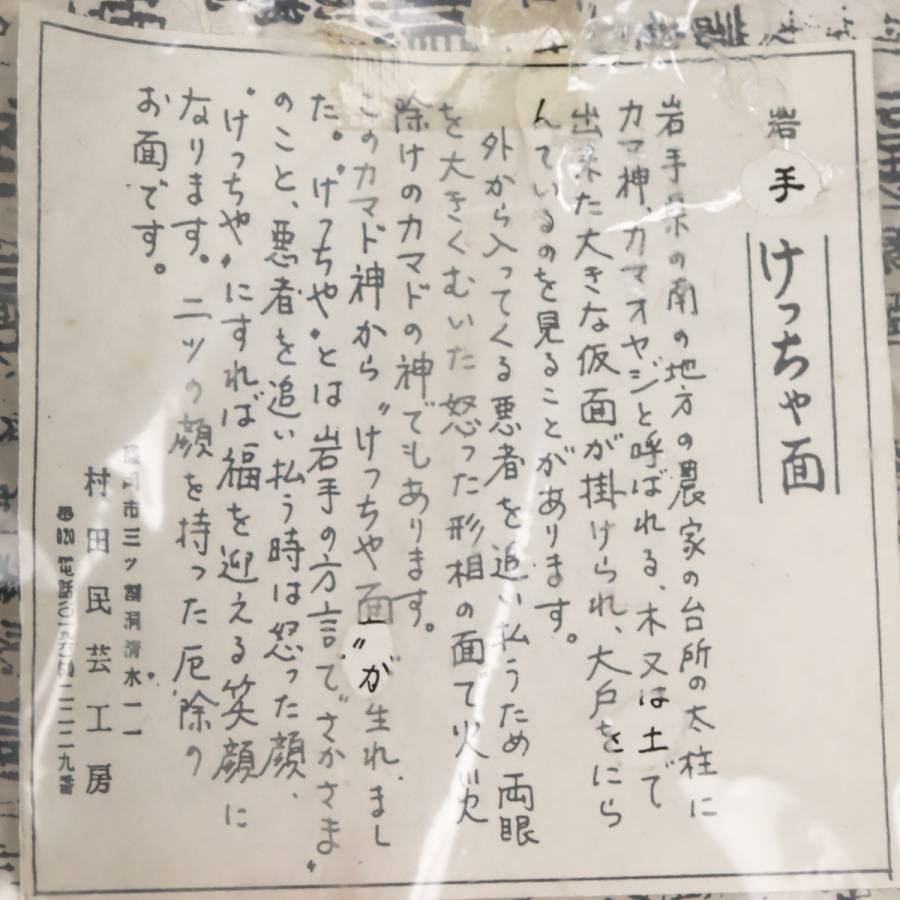 岩手 けっちゃ面
岩手県の南の地方の農家の台所の太柱に
カマ神、カマオヤジと呼ばれる、木又は土で
出来た大きな仮面が掛けられ、大戸をにら
んでいるのを見ることがあります。
外から入ってくる悪者を追い払うため両眼
を大きくむいた怒った形相の面で火災
除けのカマドの神でもあります。
このカマド神から〝けっちゃ面〟が生れまし
た。〝けっちゃ〟とは岩手の方言で〝さかさま〟
のこと、悪者を追い払う時は怒った顔、
〝けっちゃ〟にすれば福を迎える笑顔に
なります。二ツの顔を持った厄除の
お面です。
盛岡市三ツ割洞清水一一
村田民芸工房